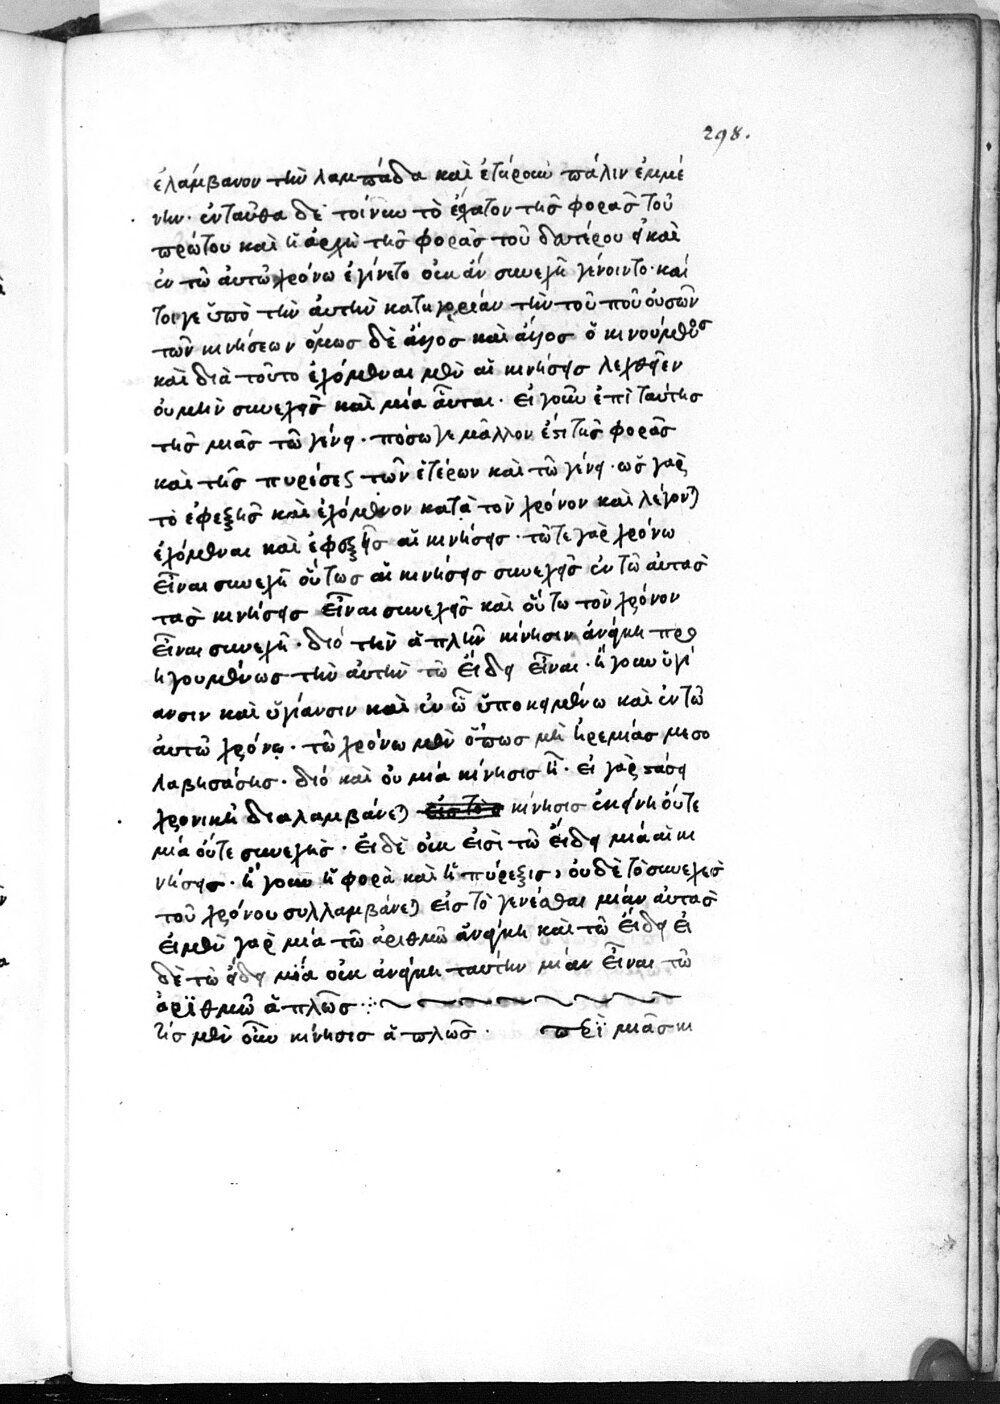 298.
ἐλάμβανον τὴν λαμπάδα καὶ ἑτέροις πάλιν ἐμμέ
νην· ἐνταῦθα δὲ τοίνυν τὸ ἔσχατον τῆς φορᾶς τοῦ
πρώτου καὶ ἡ ἀρχὴ τῆς φορᾶς τοῦ δευτέρου εἰ καὶ
ἐν τῶ αὐτῶ χρόνω ἐγίνετο οὐκ ἂν συνεχῆ γένοιντο· καί
τοιγε ὑπὸ τὴν αὐτὴν κατηγορίαν τὴν τοῦ ποῦ οὐσῶν
τῶν κινήσεων ὅμως δὲ ἄλλος καὶ ἄλλος ὁ κινούμενος
καὶ διὰ τοῦτο ἐχόμεναι μὲν αἱ κινήσεις λεχθεῖεν
οὐ μὴν συνεχεῖς καὶ μία αὗται· εἰ γοῦν ἐπὶ ταύτης
τῆς μιᾶς τῶ γένει· πόσω γε μᾶλλον ἐπὶ τῆς φορᾶς
καὶ τῆς πυρέσεως τῶν ἑτέρων καὶ τῶ γένει· ὡς γὰρ
τὸ ἐφεξῆς καὶ ἐχόμενον κατὰ τὸν χρόνον καὶ λέγονται
ἐχόμεναι καὶ ἐφεξῆς αἱ κινήσεις· τῶ τε γὰρ χρόνω
εἶναι συνεχῆ οὕτως αἱ κινήσεις συνεχεῖς ἐν τῶ αὐτὰς
τὰς κινήσεις εἶναι συνεχεῖς καὶ οὕτω τὸν χρόνον
εἶναι συνεχῆ· διό τὴν ἁπλῆν κίνησιν ἀνάγκη προ
ηγουμένως τὴν αὐτὴν τῶ εἴδει εἶναι· ἤγουν ὑγί
ανσιν καὶ ὑγίανσιν καὶ ἐν ὧ ὑποκειμένω καὶ ἐν τῶ
αὐτῶ χρόνω· τῶ χρόνω μὲν ὅπως μὴ ἠρεμίας μεσο
λαβησάσης· διό καὶ οὐ μία κίνησις ἦ· εἰ γὰρ στάσει
χρονικῆ διαλαμβάνεται εἰς τὸ κίνησις ἐκείνη οὔτε
μία οὔτε συνεχής· εἰ δὲ οὐκ εἰσὶ τῶ εἴδει μία αἱ κι
νήσεις· ἤγουν ἡ φορὰ καὶ ἡ πύρεξις, οὐδὲ τὸ συνεχὲς
τοῦ χρόνου συλλαμβάνεται εἰς τὸ γενέσθαι μίαν αὐτὰς
εἰ μὲν γὰρ μία τῶ ἀριθμῶ ἀνάγκη καὶ τῶ εἴδει εἰ
δὲ τῶ εἴδει μία οὐκ ἀνάγκη ταύτην μίαν εἶναι τῶ
ἀριθμῶ ἁπλῶς
τίς μὲν οὖν κίνησις ἁπλῶς· περὶ μιᾶς κι